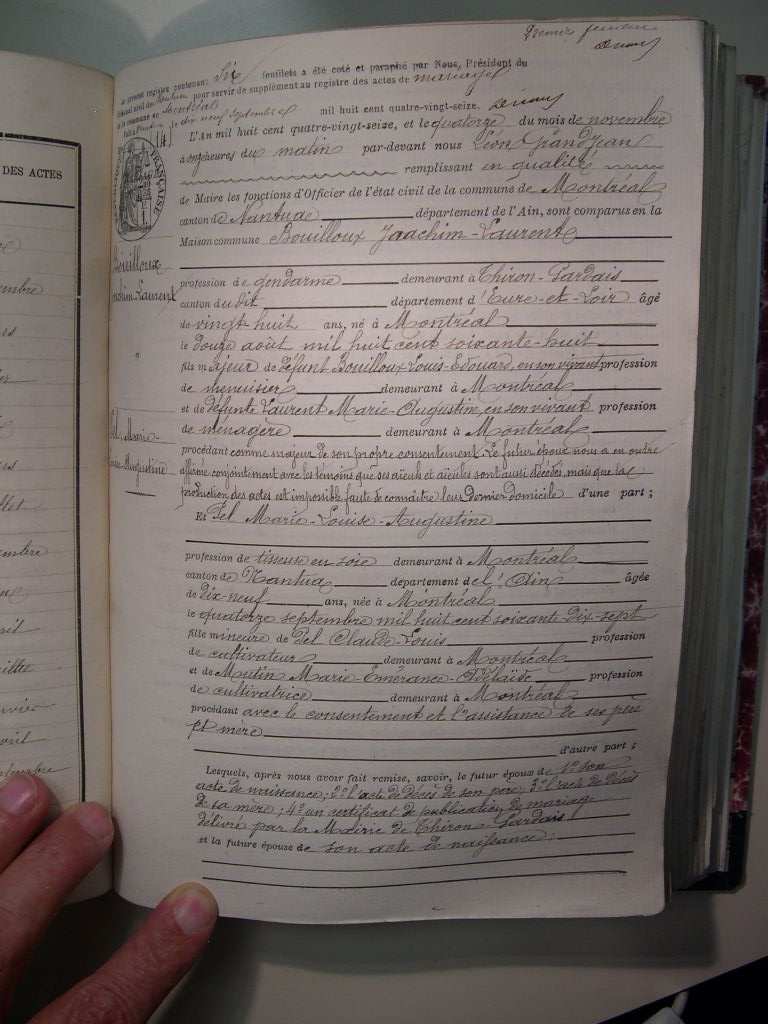 DES ACTES
Premier
Le présent registre contenant Six feuillets a été coté et paraphé par Nous, Président du
Tribunal civil de Nantua pour servir de supplément au registre des actes de mariages
de la commune de Montréal
dix neuf Septembre mil huit cent quatre-vingt-seize.
L'An mil huit cent quatre-vingt-seize, et le quatorze du mois de novembre
à onze heures du matin par-devant nous Léon Grandjean
remplissant en qualité
de Maire les fonctions d'Officier de l'état civil de la commune de Montréal
canton de Nantua département de l'Ain, sont comparus en la
Maison commune Bouilloux Joachim-Laurent
Bouilloux
Joachim-Laurent
profession de gendarme demeurant à Thiron-Gardais
canton du dit département d'Eure-et-Loir âgé
de vingt-huit ans, né à Montréal
le douze août mil huit cent soixante-huit
fils majeur de défunt Bouilloux Louis-Edouard, en son vivant profession
de menuisier demeurant à Montréal
et de défunte Laurent Marie-Augustin, en son vivant profession
de ménagère demeurant à Montréal
Pel Marie-
Louise-Augustine
procédant comme majeur de son propre consentement. Le futur époux nous a en outre
affirmé conjointement avec les témoins que ses aïeuls et aïeules sont aussi décédés, mais que la
production des actes est impossible faute de connaître leur dernier domicile d'une part ;
Et Pel Marie-Louise-Augustine
profession de tisseuse en soie demeurant à Montréal
canton de Nantua département de l'Ain âgée
de dix-neuf ans, née à Montréal
le quatorze septembre mil huit cent soixante dix-sept
fille mineure de Pel Claude-Louis profession
de cultivateur demeurant à Montréal
et de Mutin Marie-Emérance-Adélaïde profession
de cultivatrice demeurant à Montréal
procédant avec le consentement et l'assistance de ses père
et mère
d'autre part ;
Lesquels, après nous avoir fait remise, savoir, le futur épouse de 1° son
acte de naissance; 2° l'acte de décès de son père; 3° l'acte de décès
de sa mère; 4° un certificat de publication de mariage
délivré par la Mairie de Thiron-Gardais
et la future épouse de son acte de naissance.